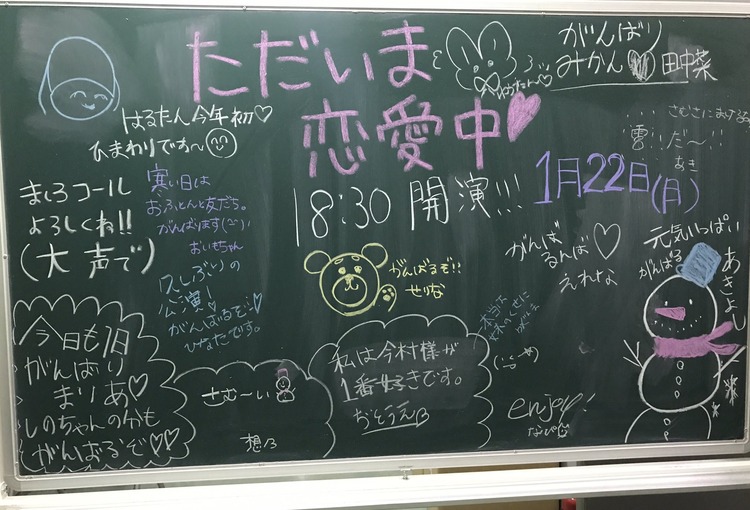 ただいま
恋愛中
がんばり
みかん 田中菜
はるたん
はるたん今年初♡
ひまわりです〜
さむさにまけるな
雪だ〜
あき
1月22日(月)
18:30 開演!!!
ましろコール
よろしくね!!
(大声で)
寒い日は
おふとんと友だち。
がんばります
おいもちゃん
久しぶりの
公演!
がんばるぞ
ひなたです。
がんばるぞ!!
せりな
がんば
るんば♡
えれな
元気いっぱい
がんばる
あきよし
今日も1日
がんばり
まりあ♡
しのちゃんのかも
がんばるぞ♡♡
さむ〜い
想乃
私は今村様が
1番好きです。
おそうえ
enjoy!
なぴ